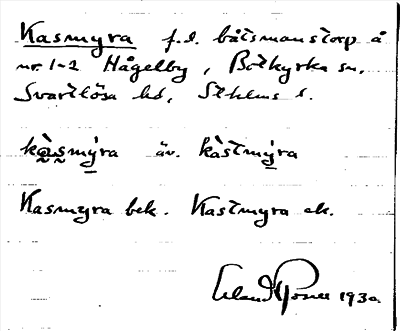 Kasmyra f.d. båtsmanstorp å
nr. 1-2 Hågelby, Botkyrka sn,
Svartlösa hd, Sthlms l.
kàsmy̠ra äv. kàstmy̠ra
Kasmyra bek. Kastmyra ek.
Erland Rosell 1930